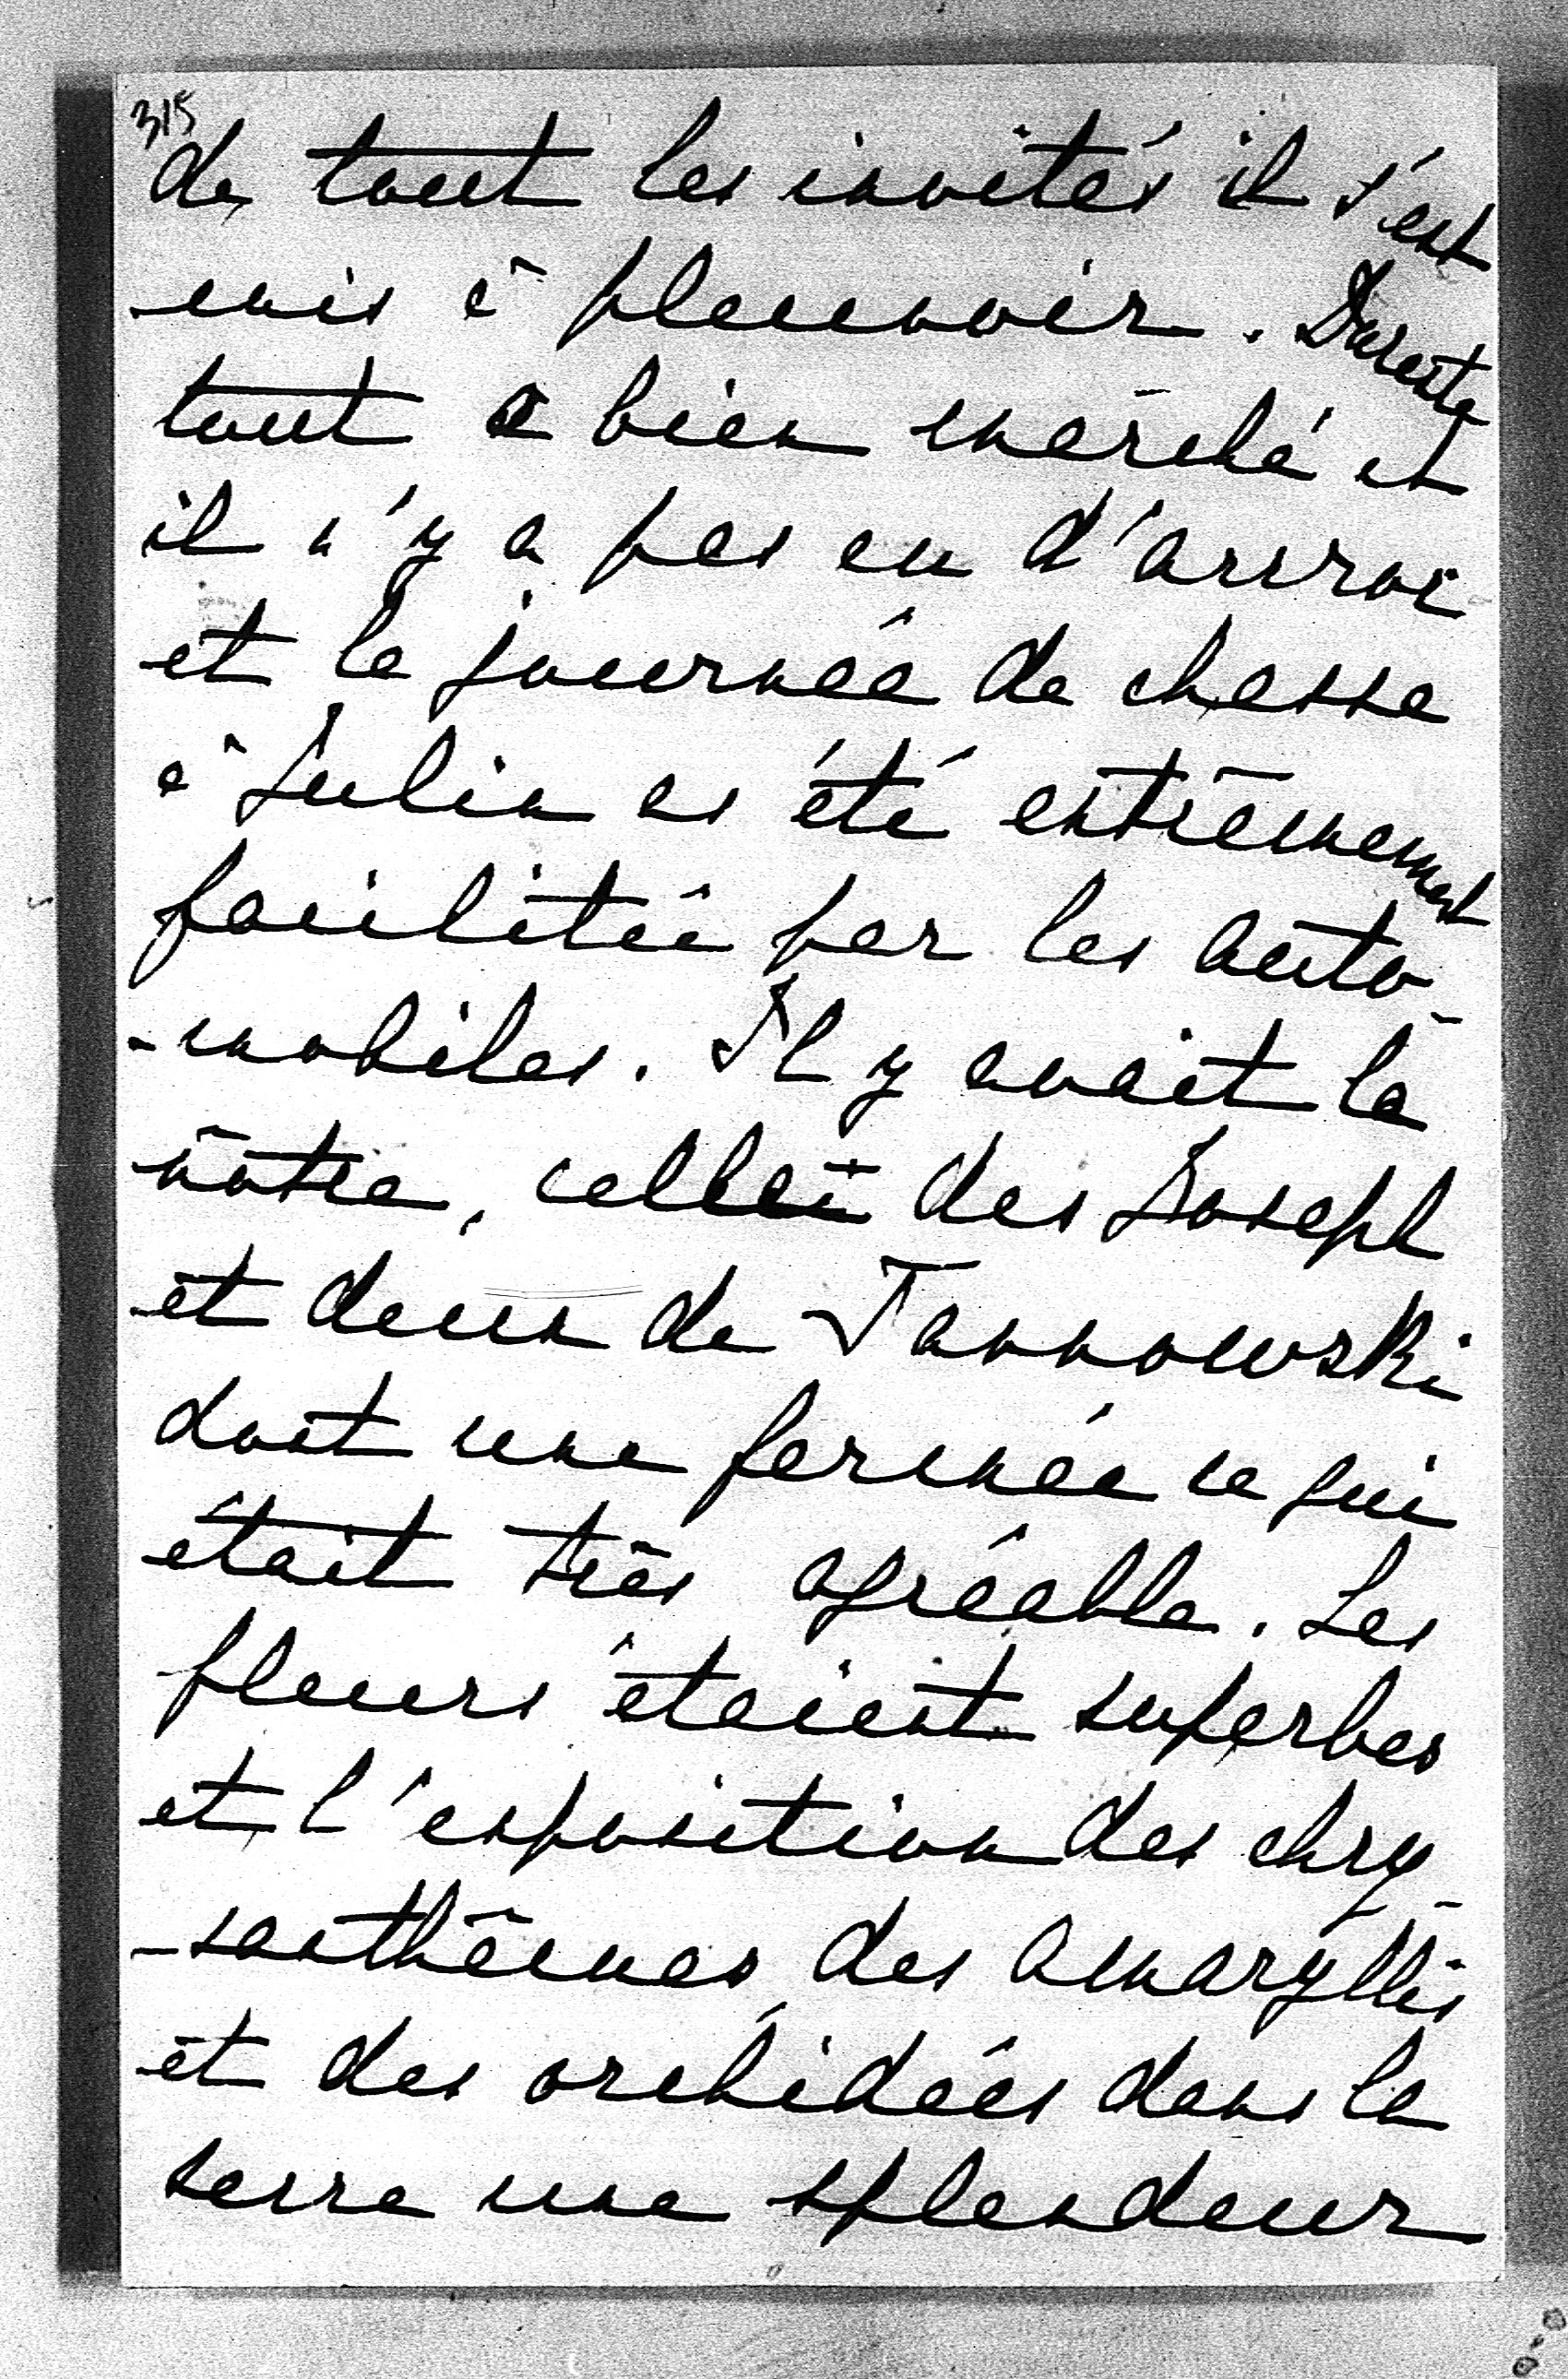 315
de tout les invités il s'est
mis à pleuvoir. Dureste
tout a bien marché et
il n'y a pas eu d'arroi
et la journée de chasse
à Julin as été extrêmement
facilitée par les auto-
-mobiles. Il y avait la
nôtre, celle des Joseph
et deux de Tarnowski
dont une fermée ce qui
était très agréable. Les
fleurs étaient superbes
et l'exposition des chry-
-santhèmes, des amaryllis
et des orchidées dans la
serre une splendeur